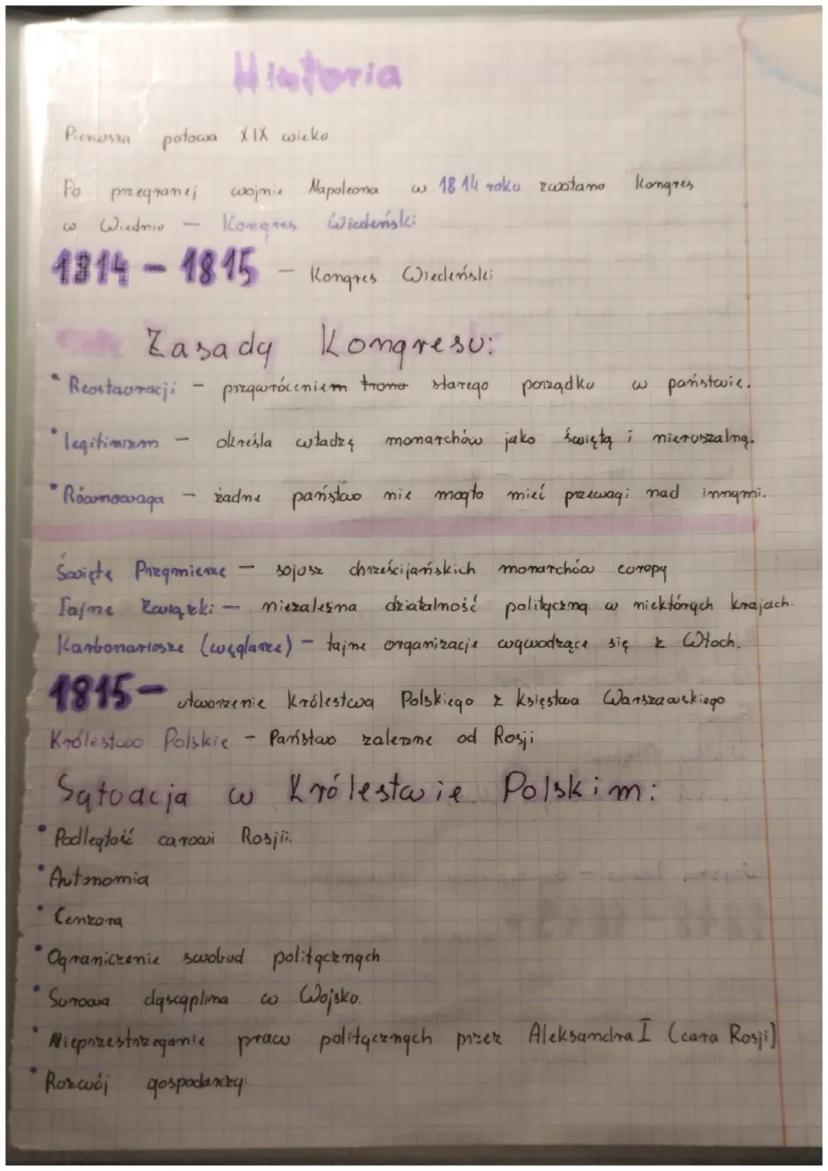 Historia
Pierwsza połowa XIX wieku
Po przegranej wojnie Napoleona w 1814 roku zwołano Kongres
w Wiedniu – Kongres Wiedeński
1814 – 1815 – Kongres Wiedeński
Zasady Kongresu:
• Restauracji – przywróceniem tronu starego porządku w państwie.
• legitimizm – określa władzę monarchów jako świętą i nieruszalną.
• Równowaga – żadne państwo nie mogło mieć przewagi nad innymi.
Święte Przymierze – sojusz chrześcijańskich monarchów europy
Tajne Związki – niezależna działalność polityczna w niektórych krajach.
Karbonariusze (węglarze) – tajne organizacje wywodzące się z Włoch.
1815 – utworzenie Królestwa Polskiego z Księstwa Warszawskiego
Królestwo Polskie – Państwo zależne od Rosji
Sytuacja w Królestwie Polskim:
• Podległość carowi Rosji.
• Autonomia
• Cenzura
• Ograniczenie swobód politycznych
• Surowa dyscyplina w Wojsku.
• Nieprzestrzeganie praw politycznych przez Aleksandra I (cara Rosji)
• Rozwój gospodarczy